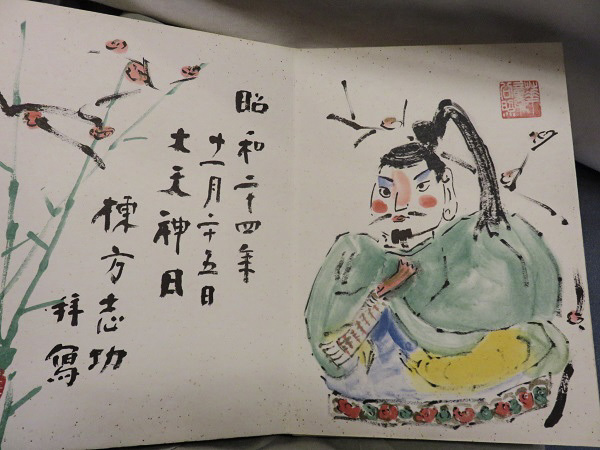 昭和二十四年
十一月二十五日
大天神日
棟方志功
拜寫